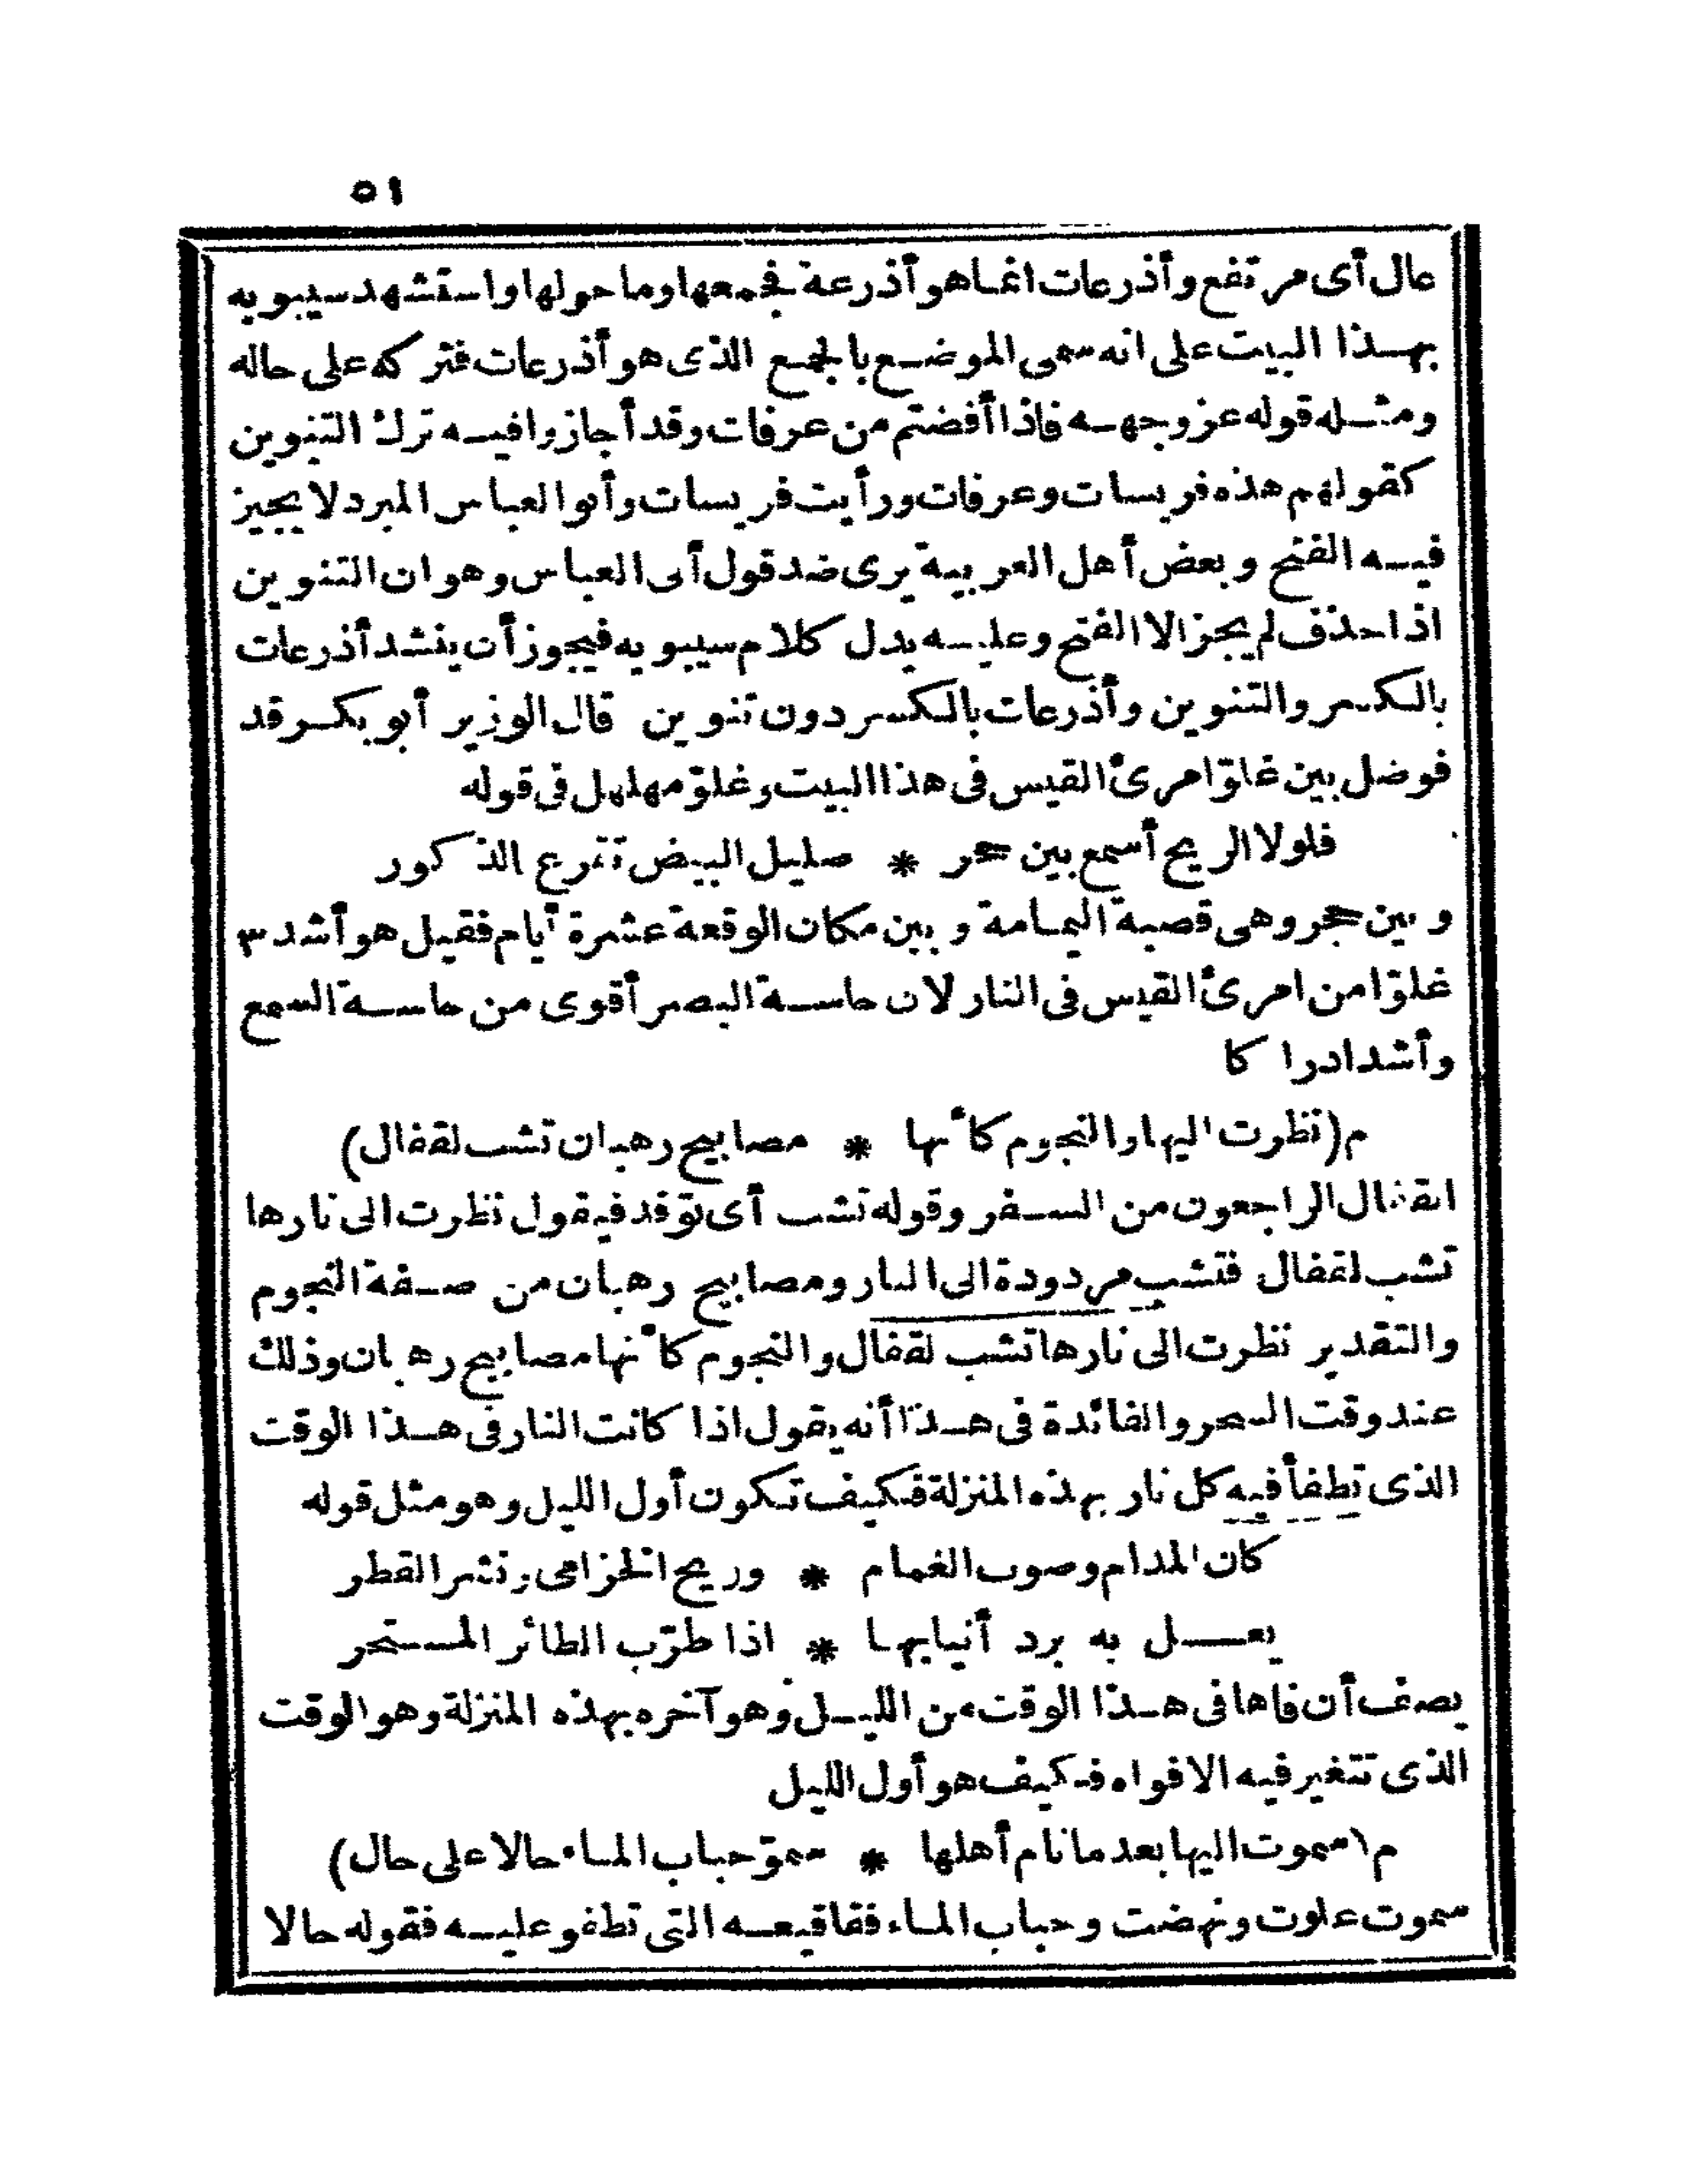 ٥١
عال أى مرتفع وأذرعات انما هو أذرعة فجمعها وما حولها واستشهد سيبويه
بهذا البيت على انه سمى الموضع بالجمع الذى هو أذرعات فتركه على حاله
ومثله قوله عز وجهه فاذا أفضتم من عرفات وقد أجازوا فيه ترك التنوين
كقولهم هذه قريسات وعرفات ورأيت قريسات وأبو العباس المبرد لا يجيز
فيه الفتح وبعض أهل العربية يرى ضد قول أبى العباس وهو ان التنوين
اذا حذف لم يجز الا الفتح وعليه يدل كلام سيبويه فيجوز أن ينشد أذرعات
بالكسر والتنوين وأذرعات بالكسر دون تنوين قال الوزير أبو بكر قد
فوضل بين غلوّ امرئ القيس فى هذا البيت وغلوّ مهلهل فى قوله
فلولا الريح أسمع بين حجر * صليل البيض تقرع الذكور
وبين حجر وهى قصبة اليمامة وبين مكان الوقعة عشرة أيام فقيل هو أشد ٣
غلوّا من امرئ القيس فى النار لان حاسة البصر أقوى من حاسة السمع
وأشد ادراكا
م (نظرت اليها والنجوم كأنها * مصابيح رهبان تشب لقفال)
القفال الراجعون من السفر وقوله تشب أى توقد فيقول نظرت الى نارها
تشب لقفال فتشب مردودة الى النار ومصابيح رهبان من صفة النجوم
والتقدير نظرت الى نارها تشب لقفال والنجوم كأنها مصابيح رهبان وذلك
عند وقت السحر والفائدة فى هذا أنه يقول اذا كانت النار فى هذا الوقت
الذى تطفأ فيه كل نار بهذه المنزلة فكيف تكون أول الليل وهو مثل قوله
كان المدام وصوب الغمام * وريح الخزامى ونشر القطر
يعل به برد أنيابها * اذا طرّب الطائر المستحر
يصف أن فاها فى هذا الوقت من الليل وهو آخره بهذه المنزلة وهو الوقت
الذى تتغير فيه الافواه فكيف هو أول الليل
م (سموت اليها بعد ما نام أهلها * سموّ حباب الماء حالا على حال)
سموت علوت ونهضت وحباب الماء فقاقيعه التى تطفو عليه فقوله حالا